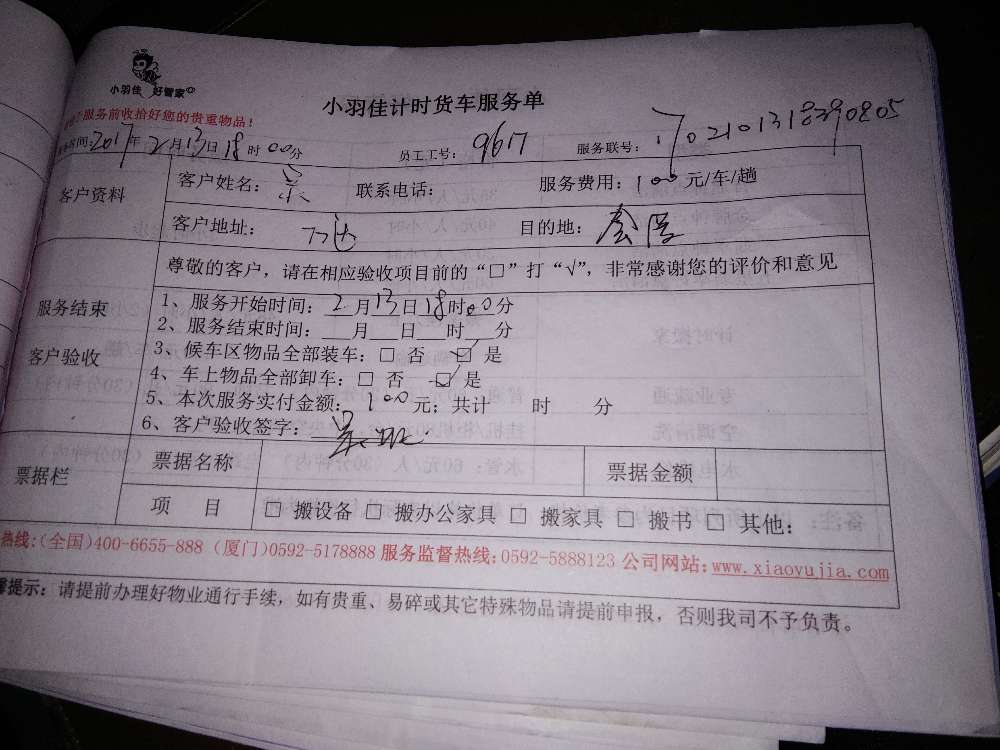 小羽佳 好管家
小羽佳计时货车服务单
服务前收拾好您的贵重物品！
时间：2017年2月13日18时00分 员工工号：9617 服务联号：1702101318390805
客户资料 客户姓名： 联系电话： 服务费用：100元/车/趟
客户地址： 目的地：
尊敬的客户，请在相应验收项目前的“□”打“√”，非常感谢您的评价和意见
服务结束
客户验收
1、服务开始时间：2月13日18时00分
2、服务结束时间：___月___日___时___分
3、候车区物品全部装车：□ 否 ☑ 是
4、车上物品全部卸车：□ 否 ☑ 是
5、本次服务实付金额：100元；共计 时 分
6、客户验收签字：
票据栏 票据名称 票据金额
项 目 □ 搬设备 □ 搬办公家具 □ 搬家具 □ 搬书 □ 其他：
热线：（全国）400-6655-888（厦门）0592-5178888 服务监督热线：0592-5888123 公司网站：www.xiaoyujia.com
提示：请提前办理好物业通行手续，如有贵重、易碎或其它特殊物品请提前申报，否则我司不予负责。